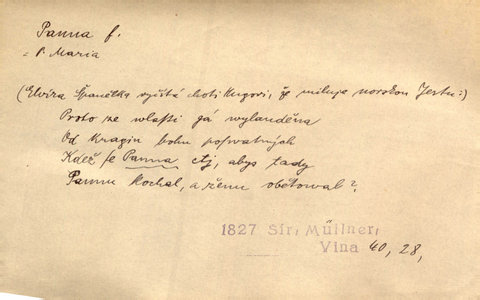 Panna f.
= P. Maria
(Elvíra Španělka vyčítá choti Hugovi, že miluje norskou Jertu:)
Proto ze wlasti gá wylauděna
Od Kragin bohu poswatných
Kdež se Panna ctj, abys tady
Pannu kochal, a ženu obětowal?
1827 Sir, Müllner,
Vina 40, 28,